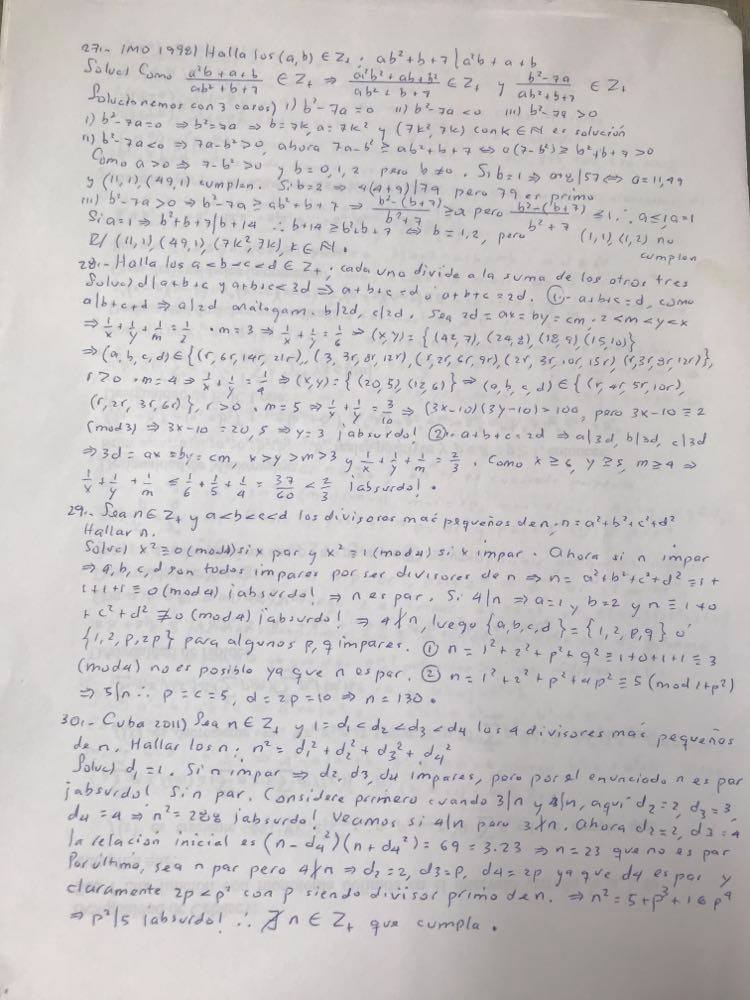 27.- IMO 1998) Halla los (a,b) ∈ Z₊ : ab²+b+7 | a²b+a+b
Soluc) Como (a²b+a+b)/(ab²+b+7) ∈ Z₊ ⇒ (a²b²+ab+b²)/(ab²+b+7) ∈ Z₊ y (b²-7a)/(ab²+b+7) ∈ Z₊
Solucionemos con 3 casos) i) b²-7a=0 ii) b²-7a<0 iii) b²-7a>0
i) b²-7a=0 ⇒ b²=7a ⇒ b=7k, a=7k² y (7k²,7k) con k∈N es solución
ii) b²-7a<0 ⇒ 7a-b²>0, ahora 7a-b² ≥ ab²+b+7 ⇔ a(7-b²) ≥ b²+b+7 >0
Como a>0 ⇒ 7-b²>0 y b=0,1,2 pero b≠0. Si b=1 ⇒ a+8|57 ⇔ a=11,49
y (11,1), (49,1) cumplen. Si b=2 ⇒ 4(4+9)|79 pero 79 es primo
iii) b²-7a>0 ⇒ b²-7a ≥ ab²+b+7 ⇒ (b²-(b+7))/(b²+7) ≥ a pero (b²-(b+7))/(b²+7) ≤ 1, ∴ a≤1, a=1
Si a=1 ⇒ b²+b+7|b+14 ∴ b+14 ≥ b²+b+7 ⇔ b=1,2, pero (1,1), (1,2) no
cumplen
R/ (11,1), (49,1), (7k²,7k), k∈N.
28.- Halla los a<b<c<d ∈ Z₊ : cada uno divide a la suma de los otros tres
Soluc) d|a+b+c y a+b+c<3d ⇒ a+b+c=d ó a+b+c=2d. ①- a+b+c=d, como
a|b+c+d ⇒ a|2d análogam. b|2d, c|2d. Sea 2d=ax=by=cm : 2<m<y<x
⇒ 1/x+1/y+1/m=1/2 • m=3 ⇒ 1/x+1/y=1/6 ⇒ (x,y)={(42,7), (24,8), (18,9), (15,10)}
⇒ (a,b,c,d) ∈ {(r,6r,14r,21r), (3,3r,8r,12r), (r,2r,6r,9r), (2r,3r,10r,15r), (r,3r,8r,12r)},
r>0 • m=4 ⇒ 1/x+1/y=1/4 ⇒ (x,y)={(20,5), (12,6)} ⇒ (a,b,c,d) ∈ {(r,4r,5r,10r),
(r,2r,3r,6r)}, r>0 • m=5 ⇒ 1/x+1/y=3/10 ⇒ (3x-10)(3y-10)=100, pero 3x-10≡2
(mod3) ⇒ 3x-10=20,5 ⇒ y=3 ¡absurdo! ②- a+b+c=2d ⇒ a|3d, b|3d, c|3d
⇒ 3d=ax=by=cm, x>y>m>3 y 1/x+1/y+1/m=2/3. Como x≥6, y≥5, m≥4 ⇒
1/x+1/y+1/m ≤ 1/6+1/5+1/4=37/60<2/3 ¡absurdo!.
29.- Sea n∈Z₊ y a<b<c<d los divisores mas pequeños de n : n=a²+b²+c²+d²
Hallar n.
Soluc) x²≡0(mod4) si x par y x²≡1(mod4) si x impar. Ahora si n impar
⇒ a,b,c,d son todos impares por ser divisores de n ⇒ n=a²+b²+c²+d²≡1+
1+1+1≡0(mod4) ¡absurdo! ⇒ n es par. Si 4|n ⇒ a=1 y b=2 y n≡1+0
+c²+d²≢0(mod4) ¡absurdo! ⇒ 4∤n, luego {a,b,c,d}={1,2,p,q} ó
{1,2,p,2p} para algunos p,q impares. ① n=1²+2²+p²+q²≡1+0+1+1≡3
(mod4) no es posible ya que n es par. ② n=1²+2²+p²+4p²≡5(mod 1+p²)
⇒ 5|n ∴ p=c=5, d=2p=10 ⇒ n=130.
30.- Cuba 2011) Sea n∈Z₊ y 1=d₁<d₂<d₃<d₄ los 4 divisores más pequeños
de n. Hallar los n : n²=d₁²+d₂²+d₃²+d₄²
Soluc) d₁=1. Si n impar ⇒ d₂,d₃,d₄ impares, pero por el enunciado n es par
¡absurdo! Si n par. Considere primero cuando 3|n y 4|n, aquí d₂=2, d₃=3,
d₄=4 ⇒ n²=288 ¡absurdo! Veamos si 4|n pero 3∤n. Ahora d₂=2, d₃=4
la relación inicial es (n-d₄²)(n+d₄²)=69=3.23 ⇒ n=23 que no es par
Por último, sea n par pero 4∤n ⇒ d₂=2, d₃=p, d₄=2p ya que d₄ es par y
claramente 2p<p² con p siendo divisor primo de n. ⇒ n²=5+p³+16p⁴
⇒ p²|5 ¡absurdo! ∴ ∄ n∈Z₊ que cumpla.